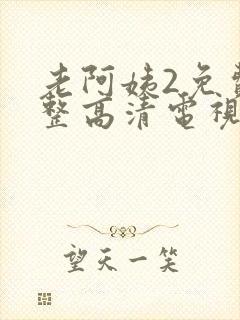 老阿姨2免費
整高清電視
望天一笑